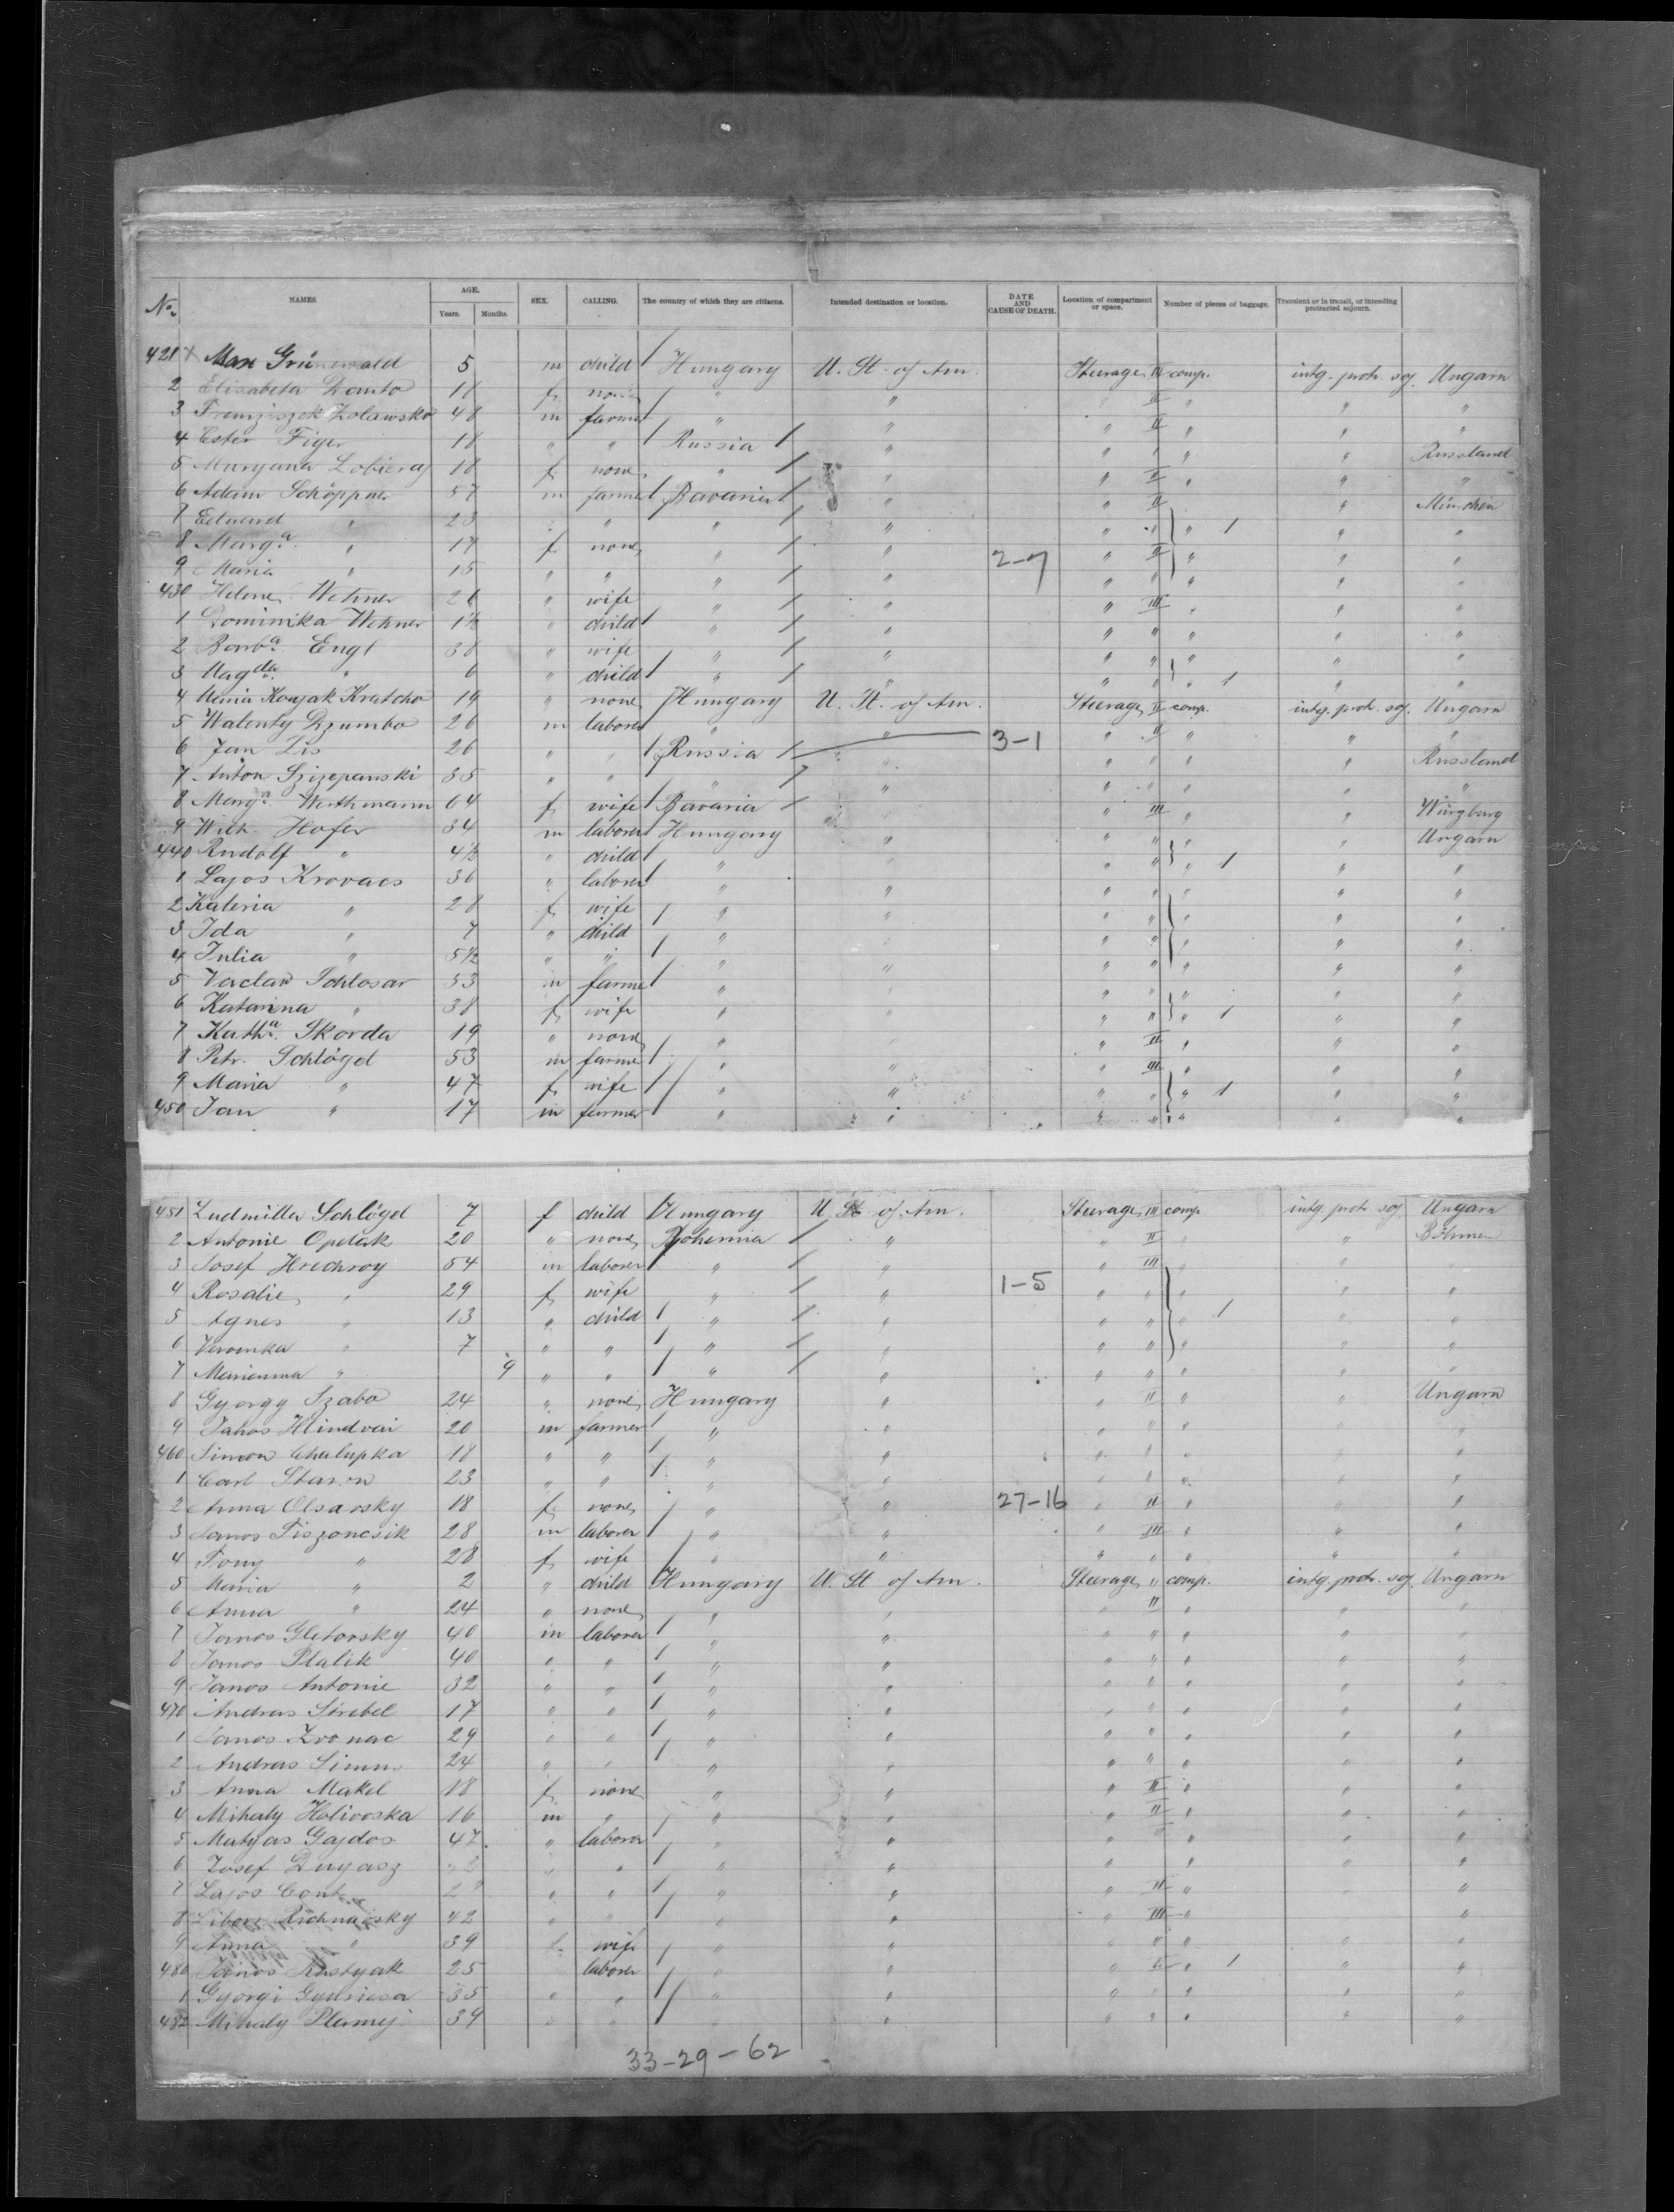 No. NAMES. AGE. Years. Months. SEX. CALLING. The country of which they are citizens. Intended destination or location. DATE AND CAUSE OF DEATH. Location of compartment or space. Number of pieces of baggage. Transient or in transit, or intending protracted sojourn.
421 Max Grünewald 5 m child Hungary U. St. of Am. Steerage III comp. intg. protr. soj. Ungarn
2 Elisabeta 18 f none " " " II " " "
3 Franziszek 48 m farmer " " " II " " "
4 Ester Figer 18 " " Russia " " " " " Russland
5 Maryana 18 f none " " " II " " "
6 Adam Schöppner 57 m farmer Bavaria " " II " München
7 Eduard " 23 " " " " " " " 1 " "
8 Marga. " 17 f none " " 2-7 " II " " "
9 Maria " 15 " " " " " " " " "
430 Helene Wehner 26 " wife " " " III " " "
1 Dominika Wehner 1½ " child " " " " " " "
2 Barba. Engl 38 " wife " " " " " " "
3 Magda. " 6 " child " " " " " 1 " "
4 Maria Konjak Kratcho 19 " none Hungary U. St. of Am. Steerage II comp. intg. protr. soj. Ungarn
5 Walenty Dzumbo 26 m laborer " " " II " " "
6 Jan Lis 26 " " Russia 3-1 " " " " Russland
7 Anton Szizepanski 35 " " " " " " " " "
8 Marga. Werthmann 64 f wife Bavaria " III " " Würzburg
9 Wilh. Hofer 34 m laborer Hungary " " " " " Ungarn
440 Rudolf " 4½ " child " " " " 1 " "
1 Lajos Krovacs 36 " laborer " " " " " " "
2 Kateria " 28 f wife " " " " " " "
3 Ida " 7 " child " " " " " " "
4 Julia " 5½ " " " " " " " " "
5 Vaclav Schlosar 53 m farmer " " " " " " "
6 Katarina " 38 f wife " " " " " 1 " "
7 Katha. Skorda 19 " none " " " II " " "
8 Petr. Schlögel 53 m farmer " " " III " " "
9 Maria " 47 f wife " " " " " 1 " "
450 Jan " 17 m farmer " " " " " " "
451 Ludmilla Schlögel 7 f child Hungary U. St. of Am. Steerage III comp. intg. protr. soj. Ungarn
2 Antonie Opelak 20 " none Bohemia " " II " " Böhmen
3 Josef Hrechroy 54 m laborer " " " III " "
4 Rosalie " 29 f wife " " 1-5 " " " " "
5 Agnes " 13 " child " " " " " 1 " "
6 Veronika " 7 " " " " " " " " "
7 Marianna " 9 " " " " " " " " "
8 Gyorgy Szabo 24 " none Hungary " " II " " Ungarn
9 Jahos Hlindvai 20 m farmer " " " " " " "
460 Simon Chalupka 18 " " " " " " " " "
1 Carl 23 " " " " " " " " "
2 Anna Olsavsky 18 f none " " 27-16 " II " " "
3 Janos Piszoncsik 28 m laborer " " " III " " "
4 Tony " 28 f wife " " " " " " "
5 Maria " 2 " child Hungary U. St. of Am. Steerage " comp. intg. protr. soj. Ungarn
6 Anna " 24 " none " " " II " " "
7 Janos Gletovsky 40 m laborer " " " " " " "
8 Janos Plalik 40 " " " " " " " " "
9 Janos Antonie 32 " " " " " " " " "
470 Andras Strebel 17 " " " " " " " " "
1 Janos Zvonac 29 " " " " " " " " "
2 Andras Simm 24 " " " " " " " " "
3 Anna Makel 18 f none " " " II " " "
4 Mihaly Holivoska 16 m " " " " II " " "
5 Matyas Gajdos 47 " laborer " " " " " " "
6 Josef Dugasz " " " " " " " "
7 Lajos " " " " " II " "
8 Richnavsky 42 " " " " " III " "
9 Anna " 39 f wife " " " " " " "
480 Janos Kustyak 25 laborer " " " II " 1 " "
1 Gyorgi 35 " " " " " " " " "
482 Mihaly 39 " " " " " " " "
33-29-62